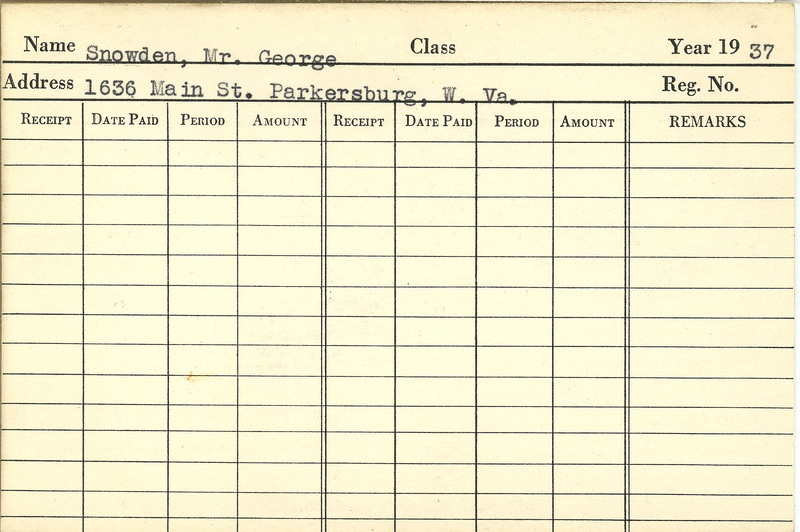 Name Snowden, Mr. George Class Year 19 37
Address 1636 Main St. Parkersburg, W. Va. Reg. No.
RECEIPT DATE PAID PERIOD AMOUNT RECEIPT DATE PAID PERIOD AMOUNT REMARKS